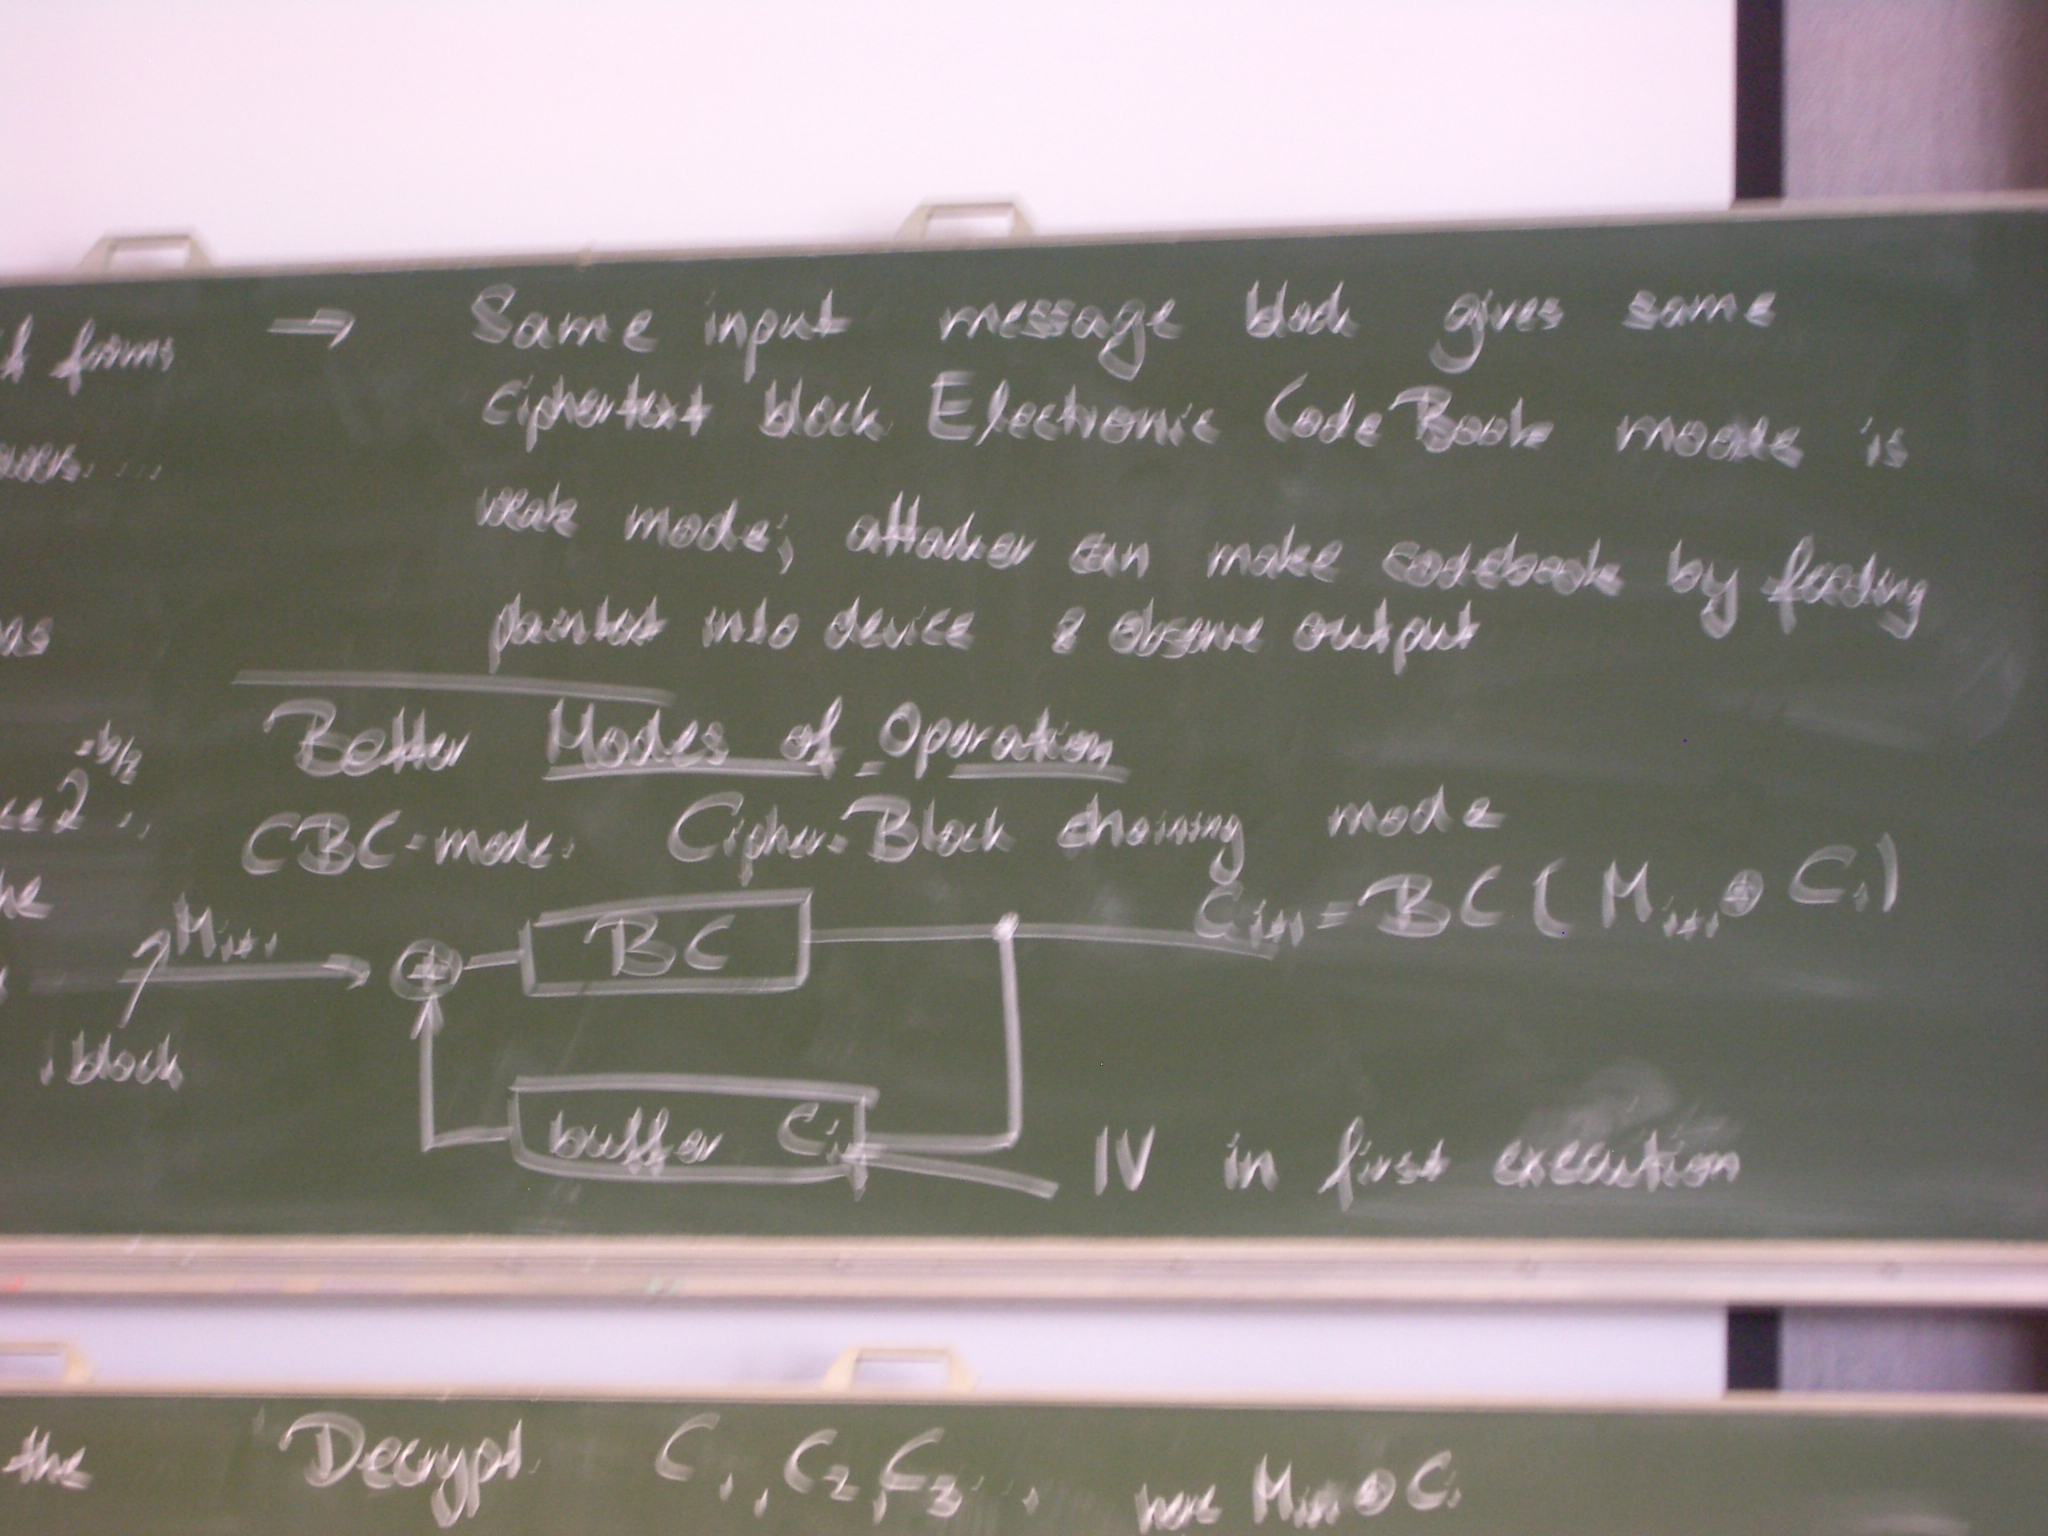 forms → Same input message block gives same
ciphertext block Electronic CodeBook mode is
weak mode; attacker can make codebook by feeding
plaintext into device & observe output
Better Modes of Operation
CBC-mode: Cipher-Block chaining mode
he
M_{i+1} ⊕ BC C_{i+1} = BC ( M_{i+1} ⊕ C_i )
block
buffer C_i IV in first execution
the Decrypt. C_1, C_2, C_3 ... here M_{i+1} ⊕ C_i